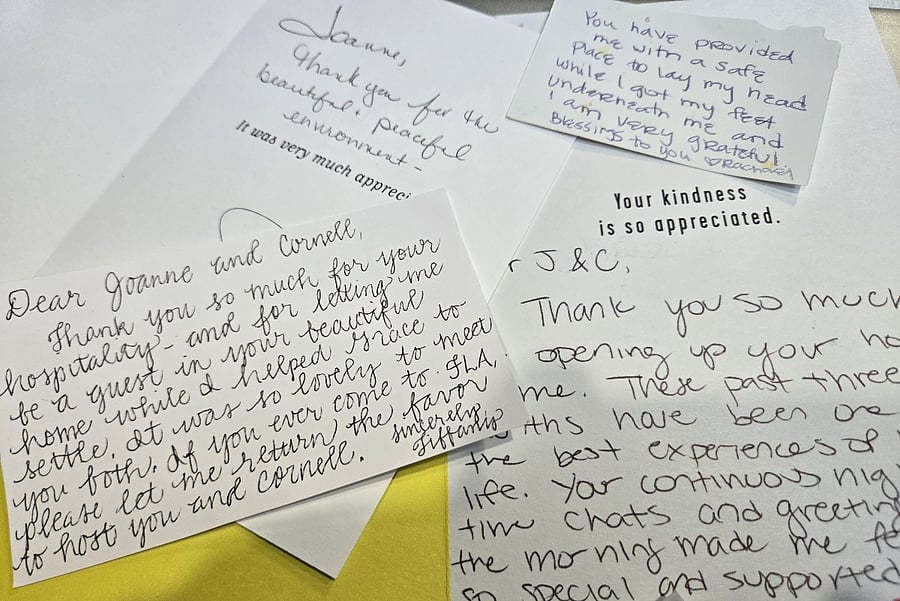 Joanne,
Thank you for the
beautiful & peaceful
environment -
It was very much appreci
You have provided
me with a safe
place to lay my head
while I got my feet
underneath me and
I am very grateful
Blessings to you
Dear Joanne and Cornell,
Thank you so much for your
hospitality - and for letting me
be a guest in your beautiful
home while I helped Grace to
settle. It was so lovely to meet
you both. If you ever come to FLA,
please let me return the favor
to host you and Cornell.
Sincerely
Tiffanie
Your kindness
is so appreciated.
r J & C,
Thank you so much
opening up your ho
me. These past three
ths have been one
the best experiences of
life. Your continuous nig
time chats and greetin
the morning made me fe
so special and supported